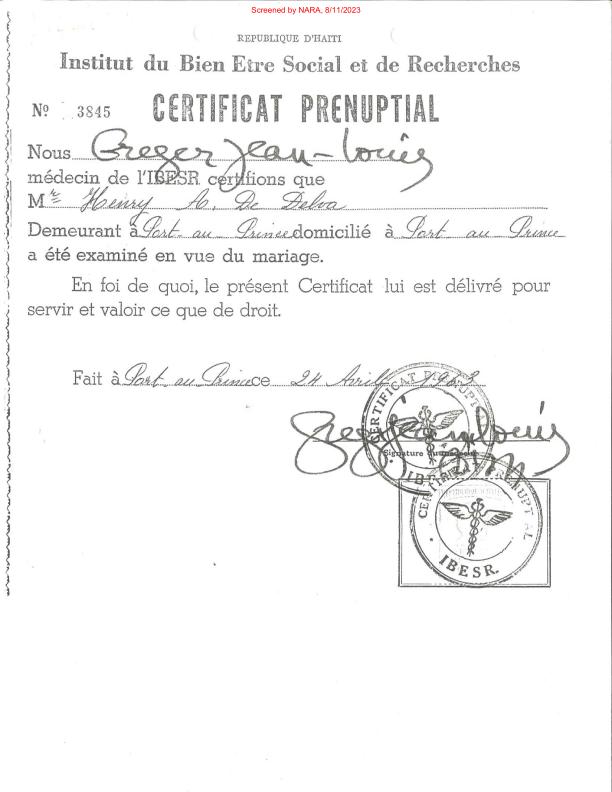 Screened by NARA, 8/11/2023
REPUBLIQUE D'HAITI
Institut du Bien Etre Social et de Recherches
Nº 3845 CERTIFICAT PRENUPTIAL
Nous Greger Jean-Louis
médecin de l'IBESR certifions que
Mr Henry A. De Delva
Demeurant à Port au Prince domicilié à Port au Prince
a été examiné en vue du mariage.
En foi de quoi, le présent Certificat lui est délivré pour
servir et valoir ce que de droit.
Fait à Port au Prince ce 24 Avril 1963
CERTIFICAT PRENUPTIAL
Signature du médecin
IBESR
CERTIFICAT PRENUPTIAL
IBESR.